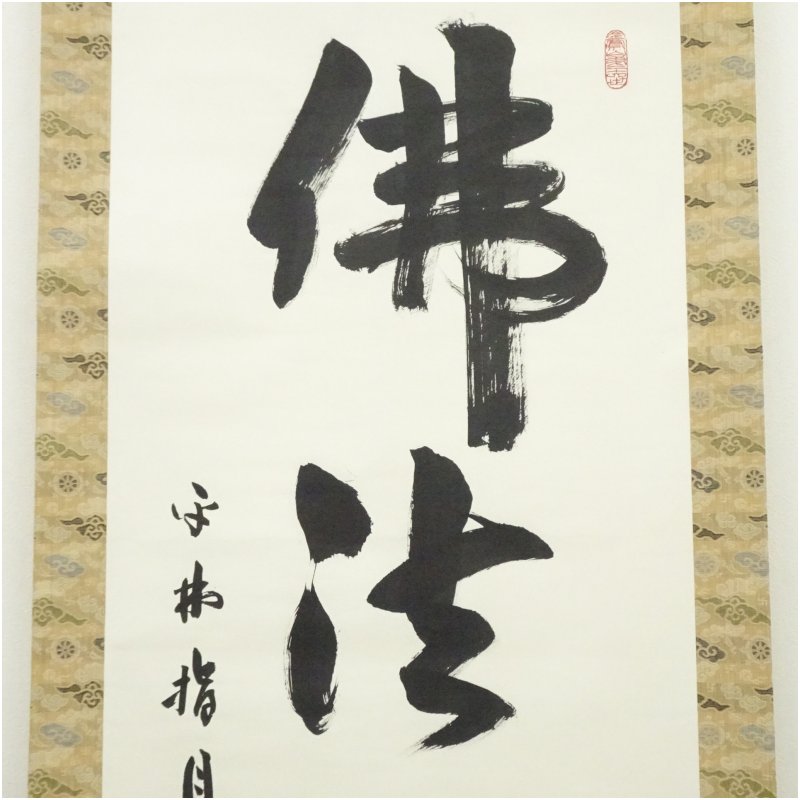 佛法
平林指月